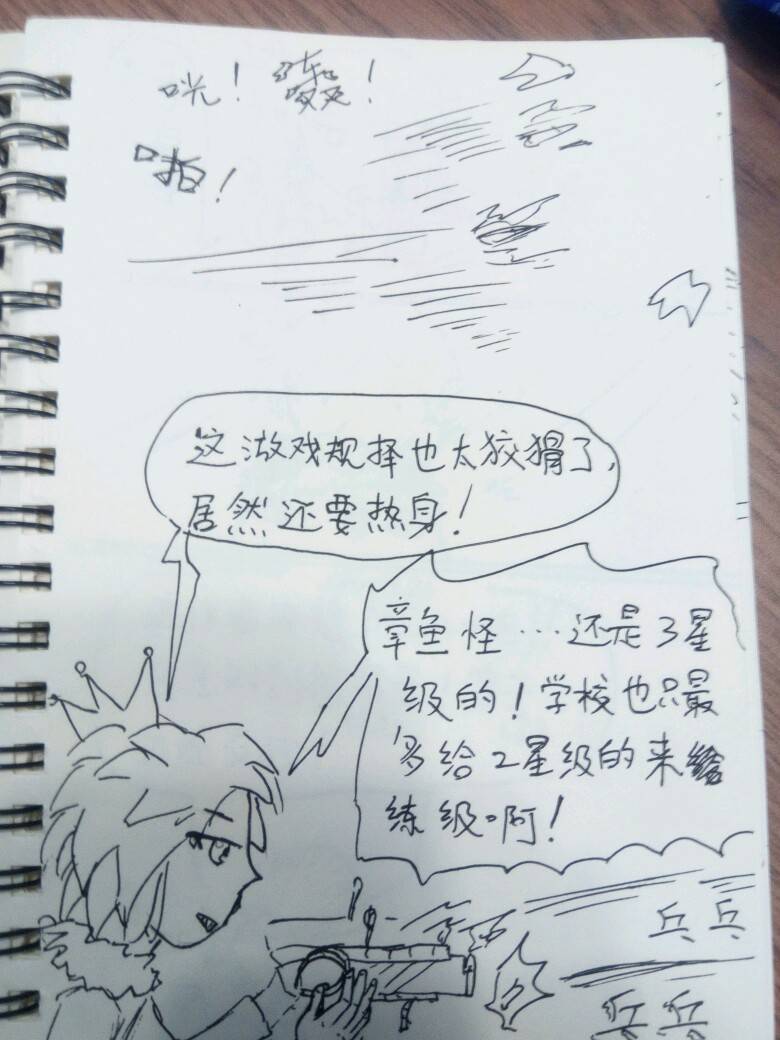 咣！轰！
啪！
这游戏规择也太狡猾了，
居然还要热身！
章鱼怪…还是3星
级的！学校也只最
多给2星级的来
练级啊！
乒乓
乒乓